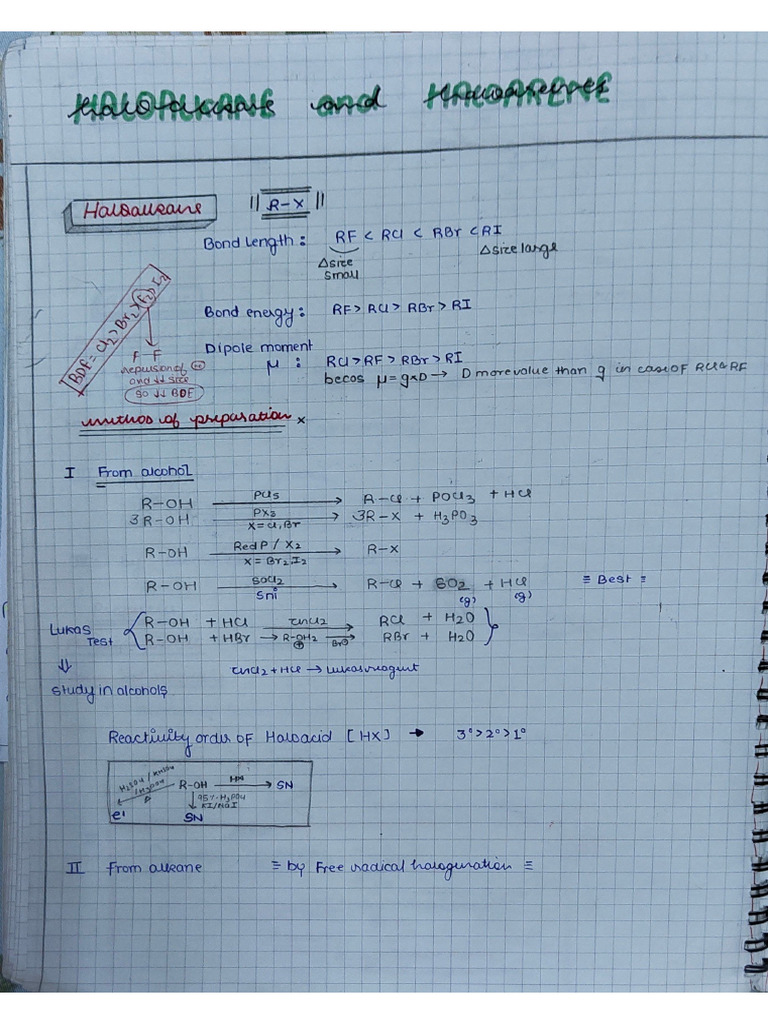 HALOALKANE and HALOARENE
Haloalkane || R-X ||
Bond Length: RF < RCl < RBr < RI
∆size small
∆size large
BDE = Cl2 > Br2 > F2 > I2
F-F
repulsion of
and ↓↓ size
so ↓↓ BDE
Bond energy: RF > RCl > RBr > RI
Dipole moment
μ : RCl > RF > RBr > RI
becos μ = q×D → D more value than q in case OF RCl & RF
method of preparation x
I From alcohol
R-OH PCl5 → R-Cl + POCl3 + HCl
3R-OH PX3 → 3R-X + H3PO3
X = Cl, Br
R-OH Red P / X2 → R-X
X = Br2, I2
R-OH SOCl2 → R-Cl + SO2 (g) + HCl (g) ≡ Best ≡
SNi
Lukas Test { R-OH + HCl ZnCl2 → RCl + H2O }
R-OH + HBr → R-OH2 ⊕ Br⊖ → RBr + H2O
⇓ ZnCl2 + HCl → Lukas reagent
study in alcohols
Reactivity order of Haloacid [HX] → 3° > 2° > 1°
H2SO4 / KHSO4 / H3PO4 ∆ R-OH HX → SN
95% H3PO4
KI/NaI
el SN
II from alkane ≡ by Free radical halogenation ≡